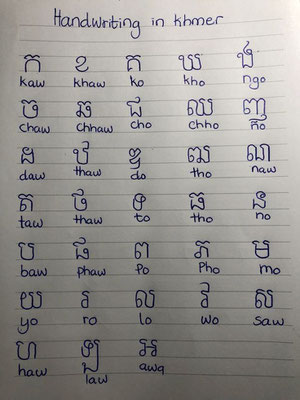 Handwriting in khmer
ក ខ គ ឃ ង
kaw khaw ko kho ngo
ច ឆ ជ ឈ ញ
chaw chhaw cho chho ño
ដ ឋ ឌ ឍ ណ
daw thaw do tho naw
ត ថ ទ ធ ន
taw thaw to tho no
ប ផ ព ភ ម
baw phaw Po Pho mo
យ រ ល វ ស
yo ro lo wo saw
ហ ឡ អ
haw law awq